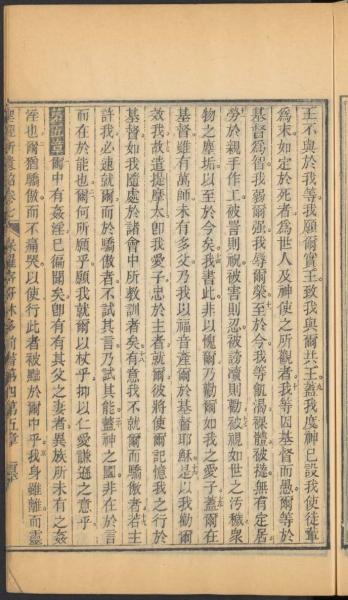 王不與於我等我願爾實王致我與爾共王蓋我度神已設我使徒輩
為末如定於死者為世人及神使之所觀者我等因基督而愚爾等於
基督為智我弱爾强我辱爾榮至於今我等飢渴裸體被撻無有定居
勞於親手作工被詈則祝被害則忍被謗瀆則勸被視如世之汚穢衆
物之塵垢以至於今矣我書此非以愧爾乃勸爾如我之愛子蓋爾在
基督雖有萬師未有多父乃我以福音產爾於基督耶穌是以我勸爾
效我故遣提摩太即我愛子忠於主者就爾彼將使爾記憶我之行於
基督如我隨處於諸會中所教訓者矣有意我不就爾而驕傲者若主
許我必速就爾而於驕傲者不試其言乃試其能蓋神之國非在於言
而在於能也爾何所願乎願我就爾以杖乎抑以仁愛謙遜之意乎
第五章爾中有姦淫已徧聞矣即有有其父之妻者異族所未有之姦
淫也爾猶驕傲而不痛哭以使行此者被黜於爾中乎我身雖離而靈